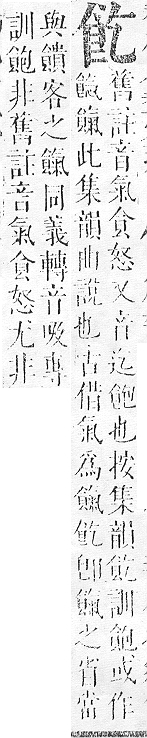 䬣舊註音氣貪怒又音迄飽也按集韻䬣訓飽或作
餼此集韻曲說也古借氣為餼䬣卽餼之省當
與饋客之餼同義轉音吸專
訓飽非舊註音氣貪怒尤非